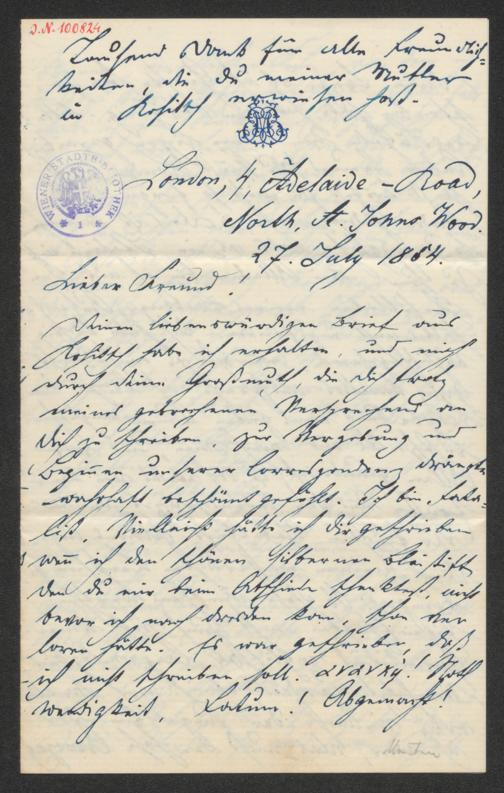 J.N. 100824
Tausend Dank für alle Freundlich=
keiten, die du meiner Mutter
in Rositsch erwiesen hast.
WIENER STADTBIBLIOTHEK
1
London, 4, Adelaide – Road,
North, St. Johns Wood.
27. July 1864.
Lieber Freund!
Deinen liebenswürdigen Brief aus
Rositsch habe ich erhalten, und mich
durch deine Großmuth, die dich trotz
meines gebrochenen Versprechens an
dich zu schreiben, zur Vergebung und
Beginnen unserer Correspondenz drängte
wahrhaft beschämt gefühlt. Ich bin Fata=
list. Vielleicht hätte ich dir geschrieben
wenn ich den schönen silbernen Bleistift
den du mir beim Abschiede schenktest, nicht
bevor ich nach Dresden kam, schon ver
loren hätte. Es war geschrieben, daß
ich nicht schreiben soll. ἀνάγκη! Noth
wendigkeit, Fatum! Abgemacht!